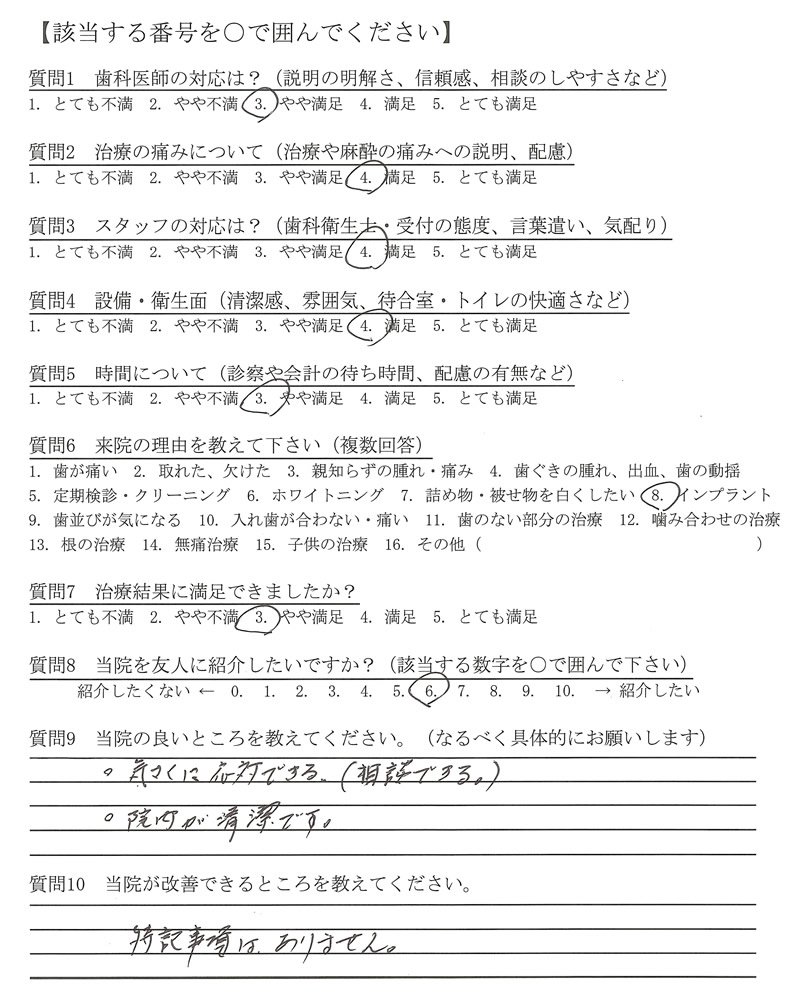 【該当する番号を○で囲んでください】
質問1 歯科医師の対応は？（説明の明解さ、信頼感、相談のしやすさなど）
1. とても不満 2. やや不満 3. やや満足 4. 満足 5. とても満足
質問2 治療の痛みについて（治療や麻酔の痛みへの説明、配慮）
1. とても不満 2. やや不満 3. やや満足 4. 満足 5. とても満足
質問3 スタッフの対応は？（歯科衛生士・受付の態度、言葉遣い、気配り）
1. とても不満 2. やや不満 3. やや満足 4. 満足 5. とても満足
質問4 設備・衛生面（清潔感、雰囲気、待合室・トイレの快適さなど）
1. とても不満 2. やや不満 3. やや満足 4. 満足 5. とても満足
質問5 時間について（診察や会計の待ち時間、配慮の有無など）
1. とても不満 2. やや不満 3. やや満足 4. 満足 5. とても満足
質問6 来院の理由を教えて下さい（複数回答）
1. 歯が痛い 2. 取れた、欠けた 3. 親知らずの腫れ・痛み 4. 歯ぐきの腫れ、出血、歯の動揺
5. 定期検診・クリーニング 6. ホワイトニング 7. 詰め物・被せ物を白くしたい 8. インプラント
9. 歯並びが気になる 10. 入れ歯が合わない・痛い 11. 歯のない部分の治療 12. 噛み合わせの治療
13. 根の治療 14. 無痛治療 15. 子供の治療 16. その他（ ）
質問7 治療結果に満足できましたか？
1. とても不満 2. やや不満 3. やや満足 4. 満足 5. とても満足
質問8 当院を友人に紹介したいですか？（該当する数字を○で囲んで下さい）
紹介したくない ← 0. 1. 2. 3. 4. 5. 6. 7. 8. 9. 10. → 紹介したい
質問9 当院の良いところを教えてください。（なるべく具体的にお願いします）
○ 気さくに応対できる。（相談できる。）
○ 院内が清潔です。
質問10 当院が改善できるところを教えてください。
特記事項は、ありません。